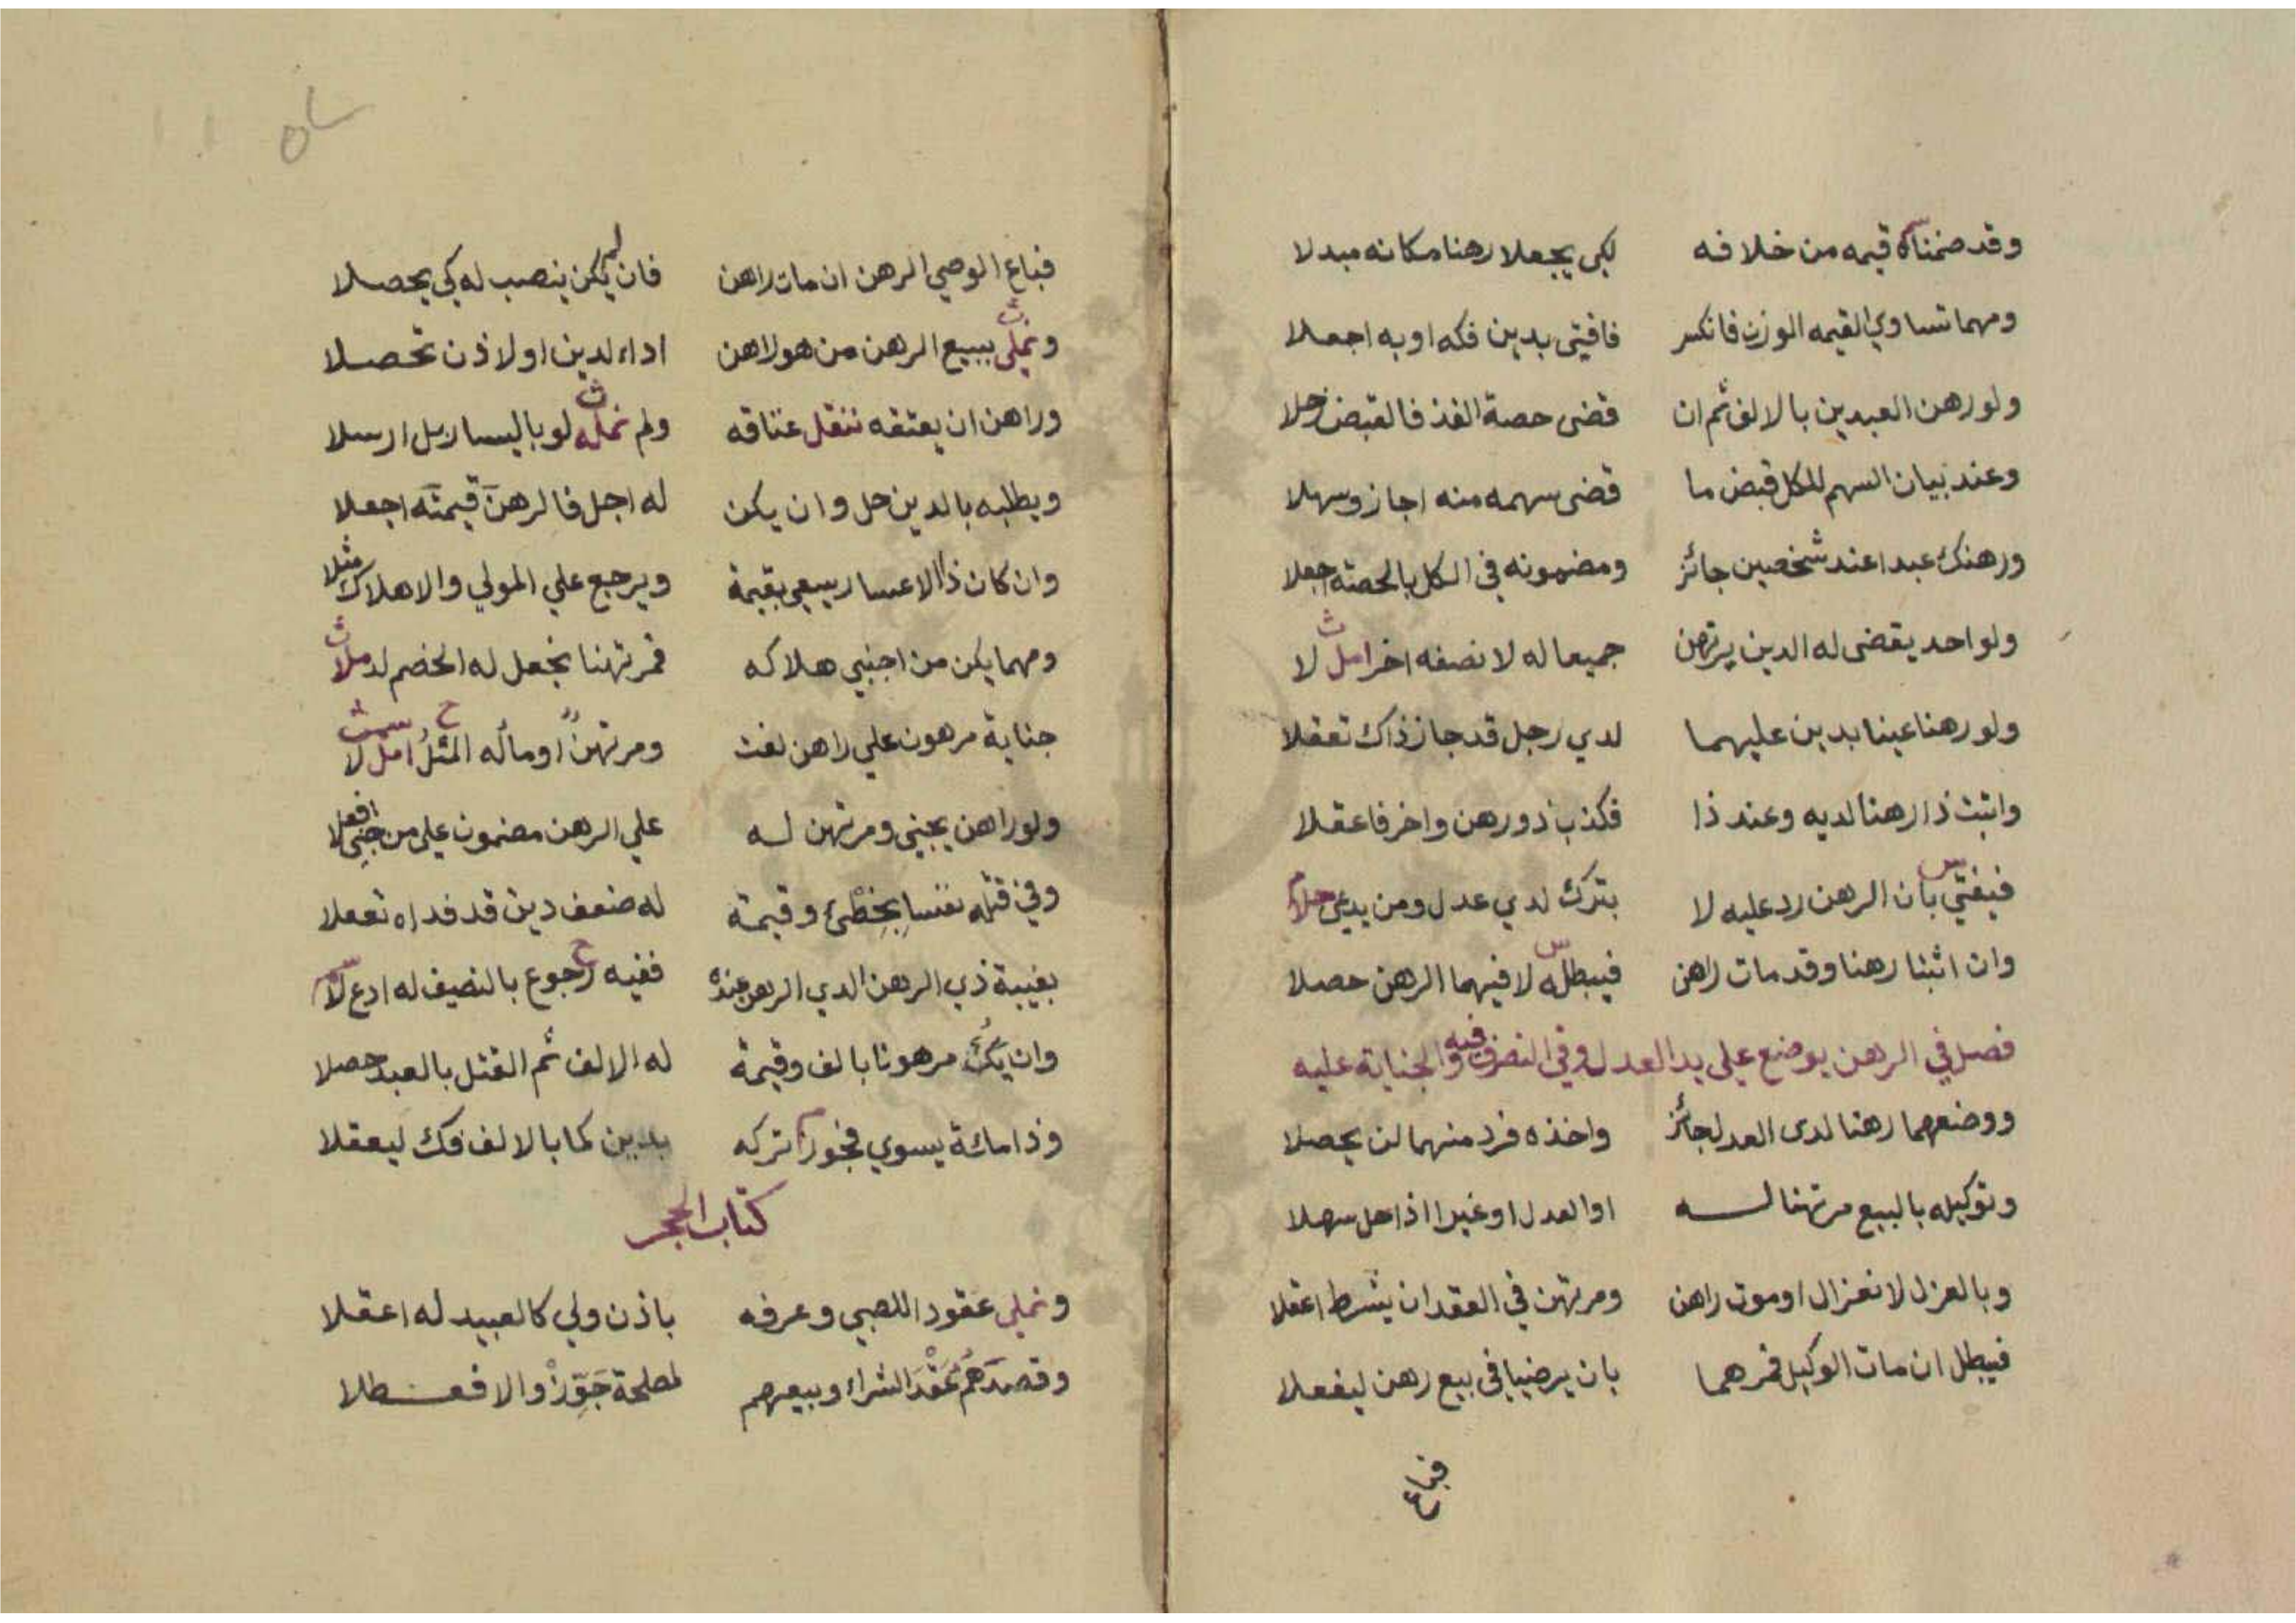 وقد ضمناه قيمه من خلافه لكي يجعلا رهنا مكانه مبدلا
ومهما تساوي القيمه الوزن فانكسر فافتى بدين فكه او به اجعلا
ولو رهن العبدين بالالف ثم ان قضى حصة الفذ فالقبض حلا
وعند بيان السهم للكل قبض ما قضى سهمه منه اجاز وسهلا
ورهنك عبدا عند شخصين جائز ومضمونه في الكل بالحصة اجعلا
ولو احد يقضى له الدين يرتهن جميعا له لا نصفه اخر امل لا
ولو رهنا عينا بدين عليهما لدي رجل قد جاز ذاك تعقلا
واثبت ذا رهنا لديه وعند ذا فكذب ذو رهن واخر فاعقلا
فيفتي بان الرهن رد عليه لا بترك لدي عدل ومن يدعى حلا
وان اثبتا رهنا وقد مات راهن فيبطله لا فيهما الرهن حصلا
فصل في الرهن يوضع علي يد العدل وفي التصرف فيه والجناية عليه
ووضعهما رهنا لدى العدل جائز واخذه فرد منهما لن يحصلا
وتوكيله بالبيع مرتهنا له او العدل او غيرا اذا حل سهلا
وبالعزل لا نعزال او موت راهن ومرتهن في العقد ان يشرط اعقلا
فيبطل ان مات الوكيل فمرهما بان يرضيا في بيع رهن ليفعلا
فباع
فباع الوصي الرهن ان مات راهن فان لم يكن ينصب له كي يحصلا
ونملى ببيع الرهن من هو لا هن اداء لدين او لاذن تحصلا
وراهن ان يعتقه ننقل عتاقه ولم نمله لو باليسار بل ارسلا
ويطلبه بالدين حل وان يكن له اجل فالرهن قيمته اجعلا
وان كان ذا الاعسار يسعى بقيمة ويرجع علي المولي والاهلاك مثلا
ومهما يكن من اجنبي هلاكه فمرتهنا نجعل له الخصم لد ملا
جناية مرهون علي راهن لغت ومرتهن او ماله المثل امل لا
ولو راهن يجني ومرتهن له علي الرهن مضمون على من جنى افعلا
وفي قتله نفسا بخطئ وقيمة له ضعف دين قد فداه تعملا
بغيبة ذي الرهن الدي الرهن عنده ففيه رجوع بالنصيف له ادع لا
وان يك مرهونا بالف وقيمة له الالف ثم القتل بالعبد حصلا
وذا مائة يسوي فجوز تركه بدين كما بالالف فك ليعقلا
كتاب الحجر
ونملي عقود اللصبي وعرفه باذن ولي كالعبيد له اعقلا
وقصدهم عقد الشراء وبيعهم لمصلحة جوز والا فعطلا